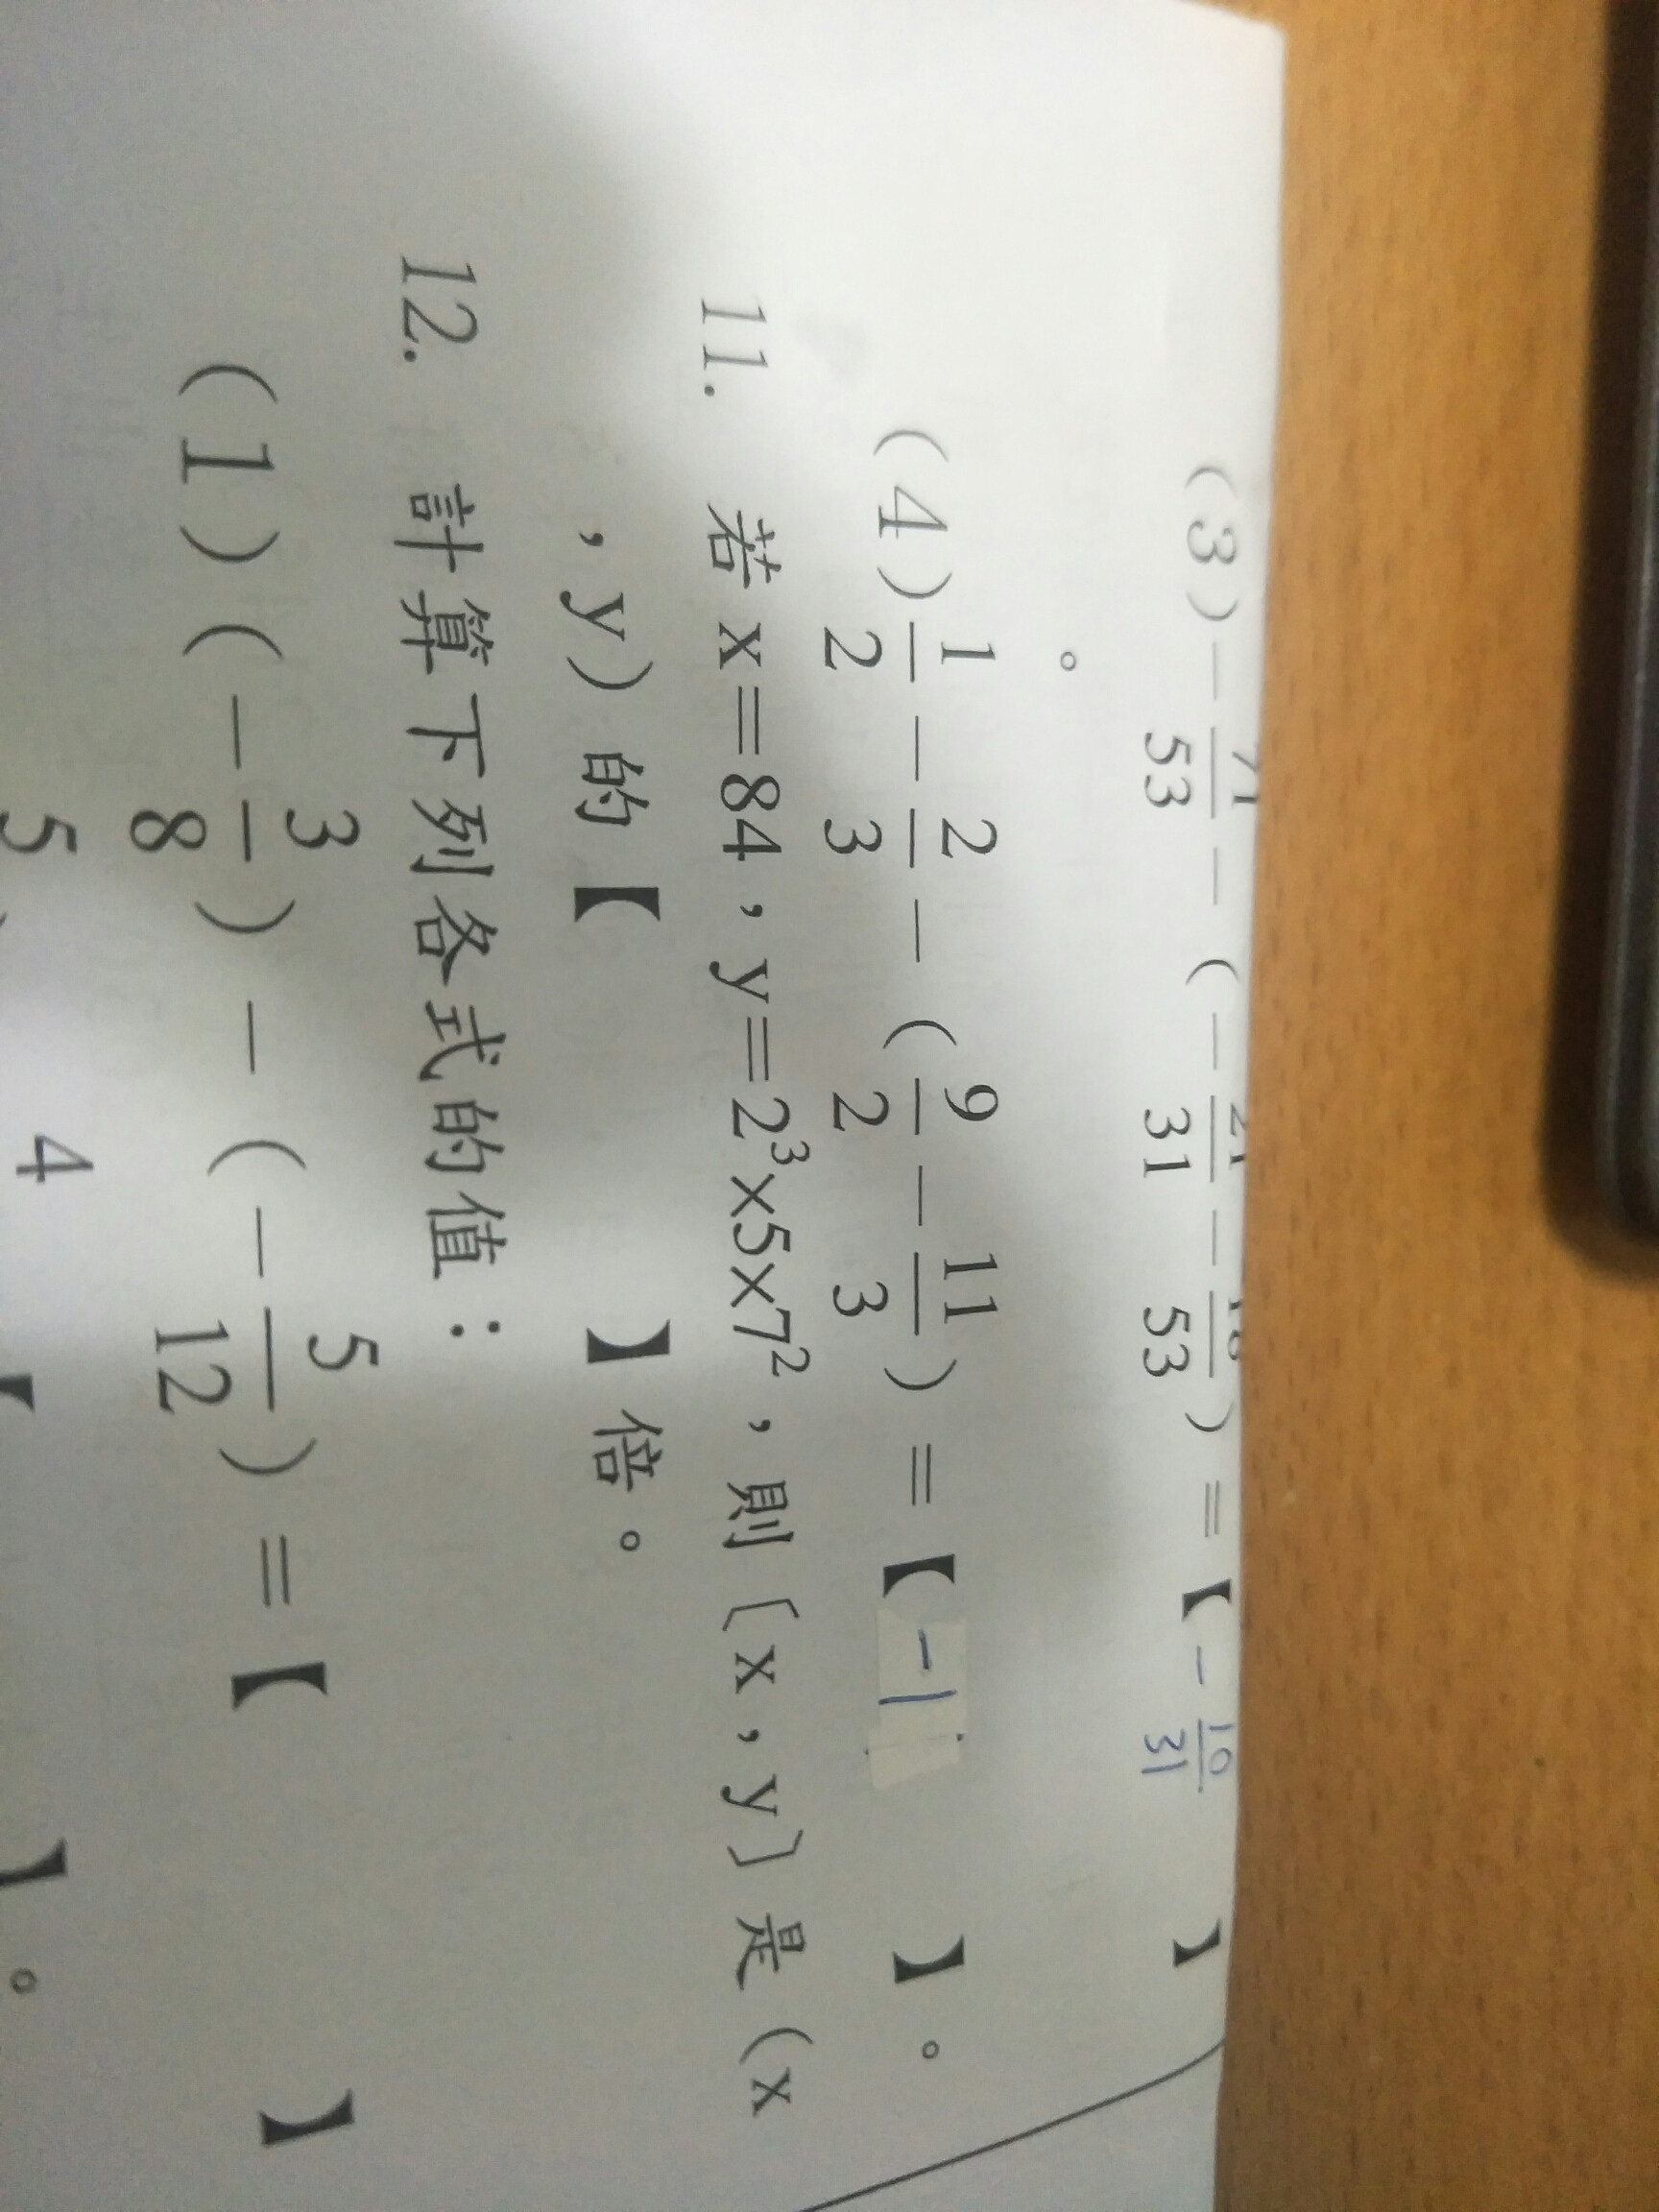 (3) - 71/53 - (- 21/31 - 18/53) = 【 - 10/31 】
。
(4) 1/2 - 2/3 - (9/2 - 11/3) = 【 -1 】。
11. 若x=84,y=2³×5×7²,則〔x,y〕是(x
,y)的【 】倍。
12. 計算下列各式的值:
(1)(- 3/8) - (- 5/12) = 【 】
5 4 【 】。